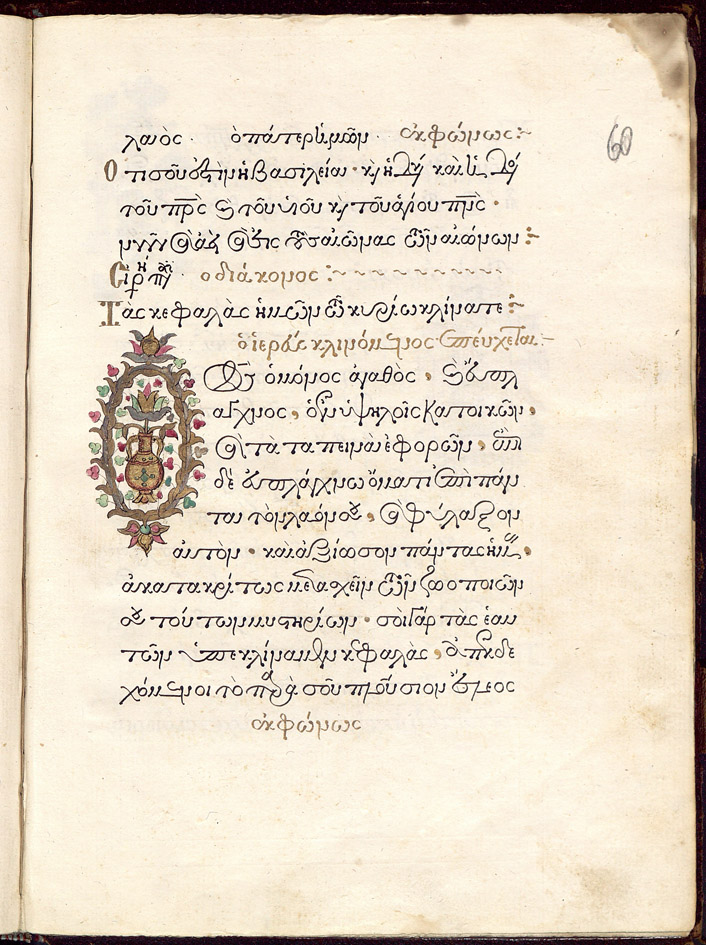 λαιὸς · ὁ πάτερ ἡμῶν · ἐκφώνως :~
Ὅτι σοῦ ἐστιν ἡ βασιλεία · κ(αὶ) ἡ δύ(ναμις) καὶ ἡ δό(ξα)
τοῦ πρς κ(αὶ) τοῦ υἱοῦ κ(αὶ) τοῦ ἁγίου πνς ·
νῦν καὶ ἀεὶ καὶ εἰς τοὺς αἰῶνας τῶν αἰώνων :~
Εἰρή(νη) πᾶ(σι) ὁ διάκονος :~
Τὰς κεφαλὰς ἡμῶν τῶ κυρίω κλίνατε :~
ὁ ἱερεὺς κλινόμενος ἐπεύχεται :~
Ὁ Θ(εὸ)ς ὁ μόνος ἀγαθὸς, καὶ εὔσπλ
αγχνος, ὁ ἐν ὑψηλοῖς κατοικῶν,
καὶ τὰ ταπεινὰ ἐφορῶν, ἔπι
δε εὐσπλάγχνω ὄμματι ἐπὶ πάν
τα τὸν λαόν σου, καὶ φύλαξον
αὐτόν · καὶ ἀξίωσον πάντας ἡμ(ᾶς),
ἀκατακρίτως μετασχεῖν τῶν ζωοποιῶν
σου τούτων μυστηρίων · σοὶ γὰρ τὰς ἑαυ
τῶν ὑπεκλίναμεν κεφαλὰς, ἀπεκδε
χόμενοι τὸ παρὰ σοῦ πλούσιον ἔλεος
ἐκφώνως
60